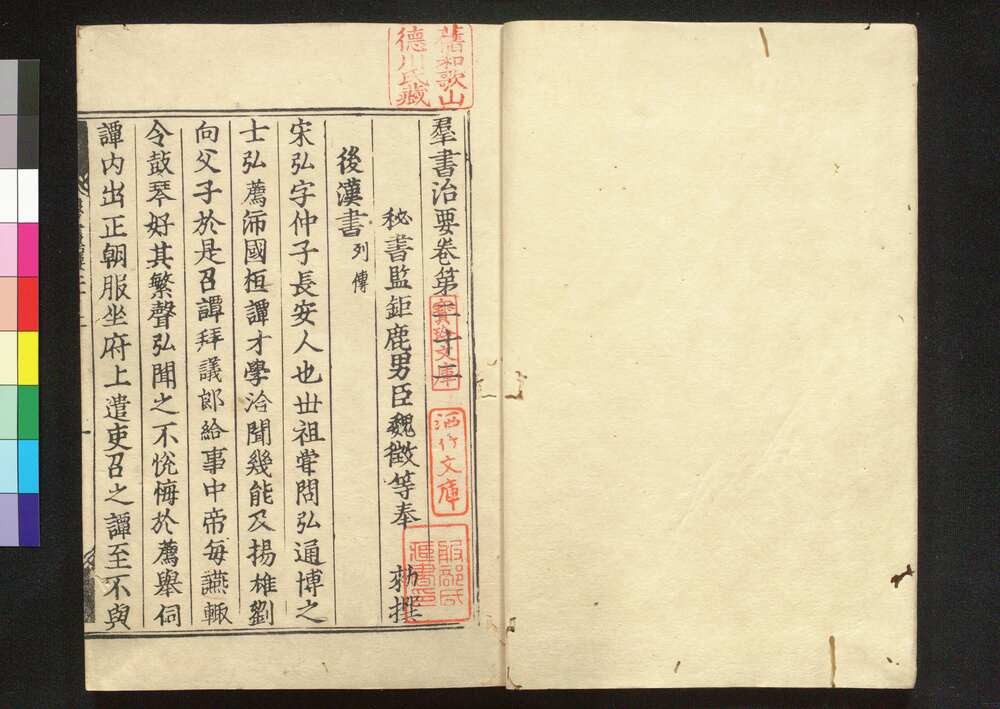 羣書治要卷第二十二
秘書監鉅鹿男臣魏徵等奉 勑撰
後漢書列傳
宋弘字仲子長安人也世祖甞問弘通博之
士弘薦沛國桓譚才學洽聞幾能及揚雄劉
向父子於是召譚拜議郎給事中帝每讌輙
令鼓琴好其繁聲弘聞之不恱悔於薦舉伺
譚内出正朝服坐府上遣吏召之譚至不與
舊和歌山
德川氏藏
寶玲文庫
洒竹文庫
服部氏